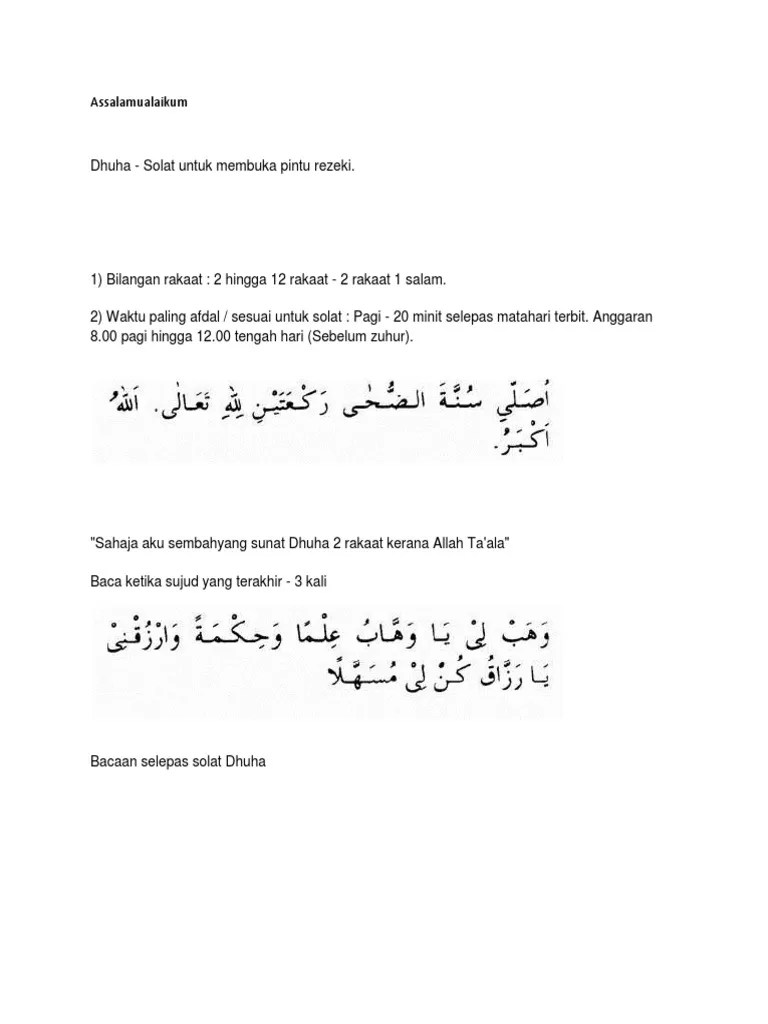 Assalamualaikum
Dhuha - Solat untuk membuka pintu rezeki.
1) Bilangan rakaat : 2 hingga 12 rakaat - 2 rakaat 1 salam.
2) Waktu paling afdal / sesuai untuk solat : Pagi - 20 minit selepas matahari terbit. Anggaran
8.00 pagi hingga 12.00 tengah hari (Sebelum zuhur).
اُصَلِّي سُنَّةَ الـضُّـحٰـى رَكْـعَتَيْـنِ لِلّٰهِ تَعَـالٰى. اَللّٰهُ
اَكْـبَـرُ.
"Sahaja aku sembahyang sunat Dhuha 2 rakaat kerana Allah Ta'ala"
Baca ketika sujud yang terakhir - 3 kali
وَهَبْ لِيْ يَـا وَهَّـابُ عِلْـمًا وَحِـكْـمَـةً وَارْزُقْـنِيْ
يَـا رَزَّاقُ كُـنْ لِيْ مُسَـهَّـلًا
Bacaan selepas solat Dhuha